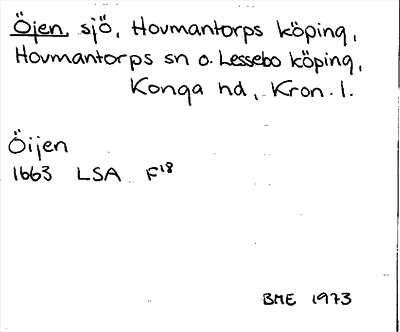 Öjen, sjö, Hovmantorps köping,
Hovmantorps sn o. Lessebo köping,
Konga hd, Kron. l.
Öijen
1663 LSA F18
BME 1973